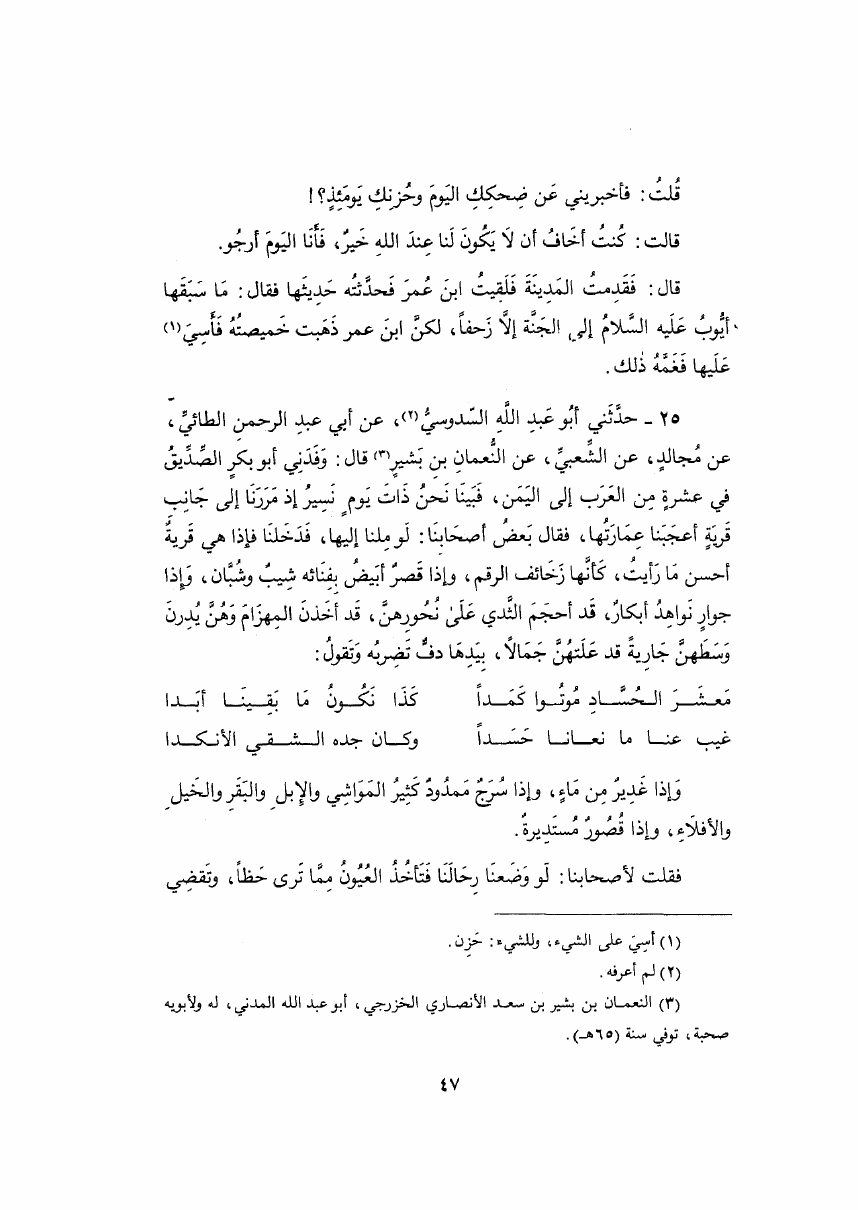 قُلتُ: فأخبريني عَن ضِحكِكِ اليَومَ وحُزنِكِ يَومَئِذٍ؟!
قالت: كُنتُ أخَافُ أن لَا يَكُونَ لَنا عِندَ اللهِ خَيرٌ، فَأَنَا اليَومَ أرجُو.
قال: فَقَدِمتُ المَدِينَةَ فَلَقِيتُ ابنَ عُمرَ فَحدَّثته حَدِيثَها فقال: مَا سَبَقَها
أيُّوبُ عَلَيه السَّلامُ إلى الجَنَّة إلاَّ زَحفاً، لكنَّ ابنَ عمر ذَهَبت خَميصتُهُ فَأَسِيَ(١)
عَلَيها فَغَمَّهُ ذٰلك.
٢٥ - حدَّثَني أبُو عَبدِ اللَّهِ السَّدوسيُّ(٢)، عن أبي عبدِ الرحمنِ الطائيِّ،
عن مُجالدٍ، عن الشَّعبيِّ، عن النُّعمانِ بن بَشيرٍ(٣) قال: وَفَدَنِي أبو بكرٍ الصِّدِّيقُ
في عشرةٍ مِن العَرَب إلى اليَمَن، فَبَينَا نَحنُ ذَاتَ يَومٍ نَسِيرُ إذ مَرَرنَا إلى جَانِبِ
قَريَةٍ أعجَبَنا عِمَارَتُها، فقال بَعضُ أصحَابِنَا: لَو مِلنا إليها، فَدَخَلنَا فإذا هي قَريةٌ
أحسن مَا رَأيتُ، كَأنَّها زَخائف الرقم، وإذا قَصرٌ أبيَضُ بِفِنائه شِيبٌ وشُبَّان، وَإِذا
جوارٍ نَواهِدُ أبكارٌ، قَد أحجَمَ الثَّدي عَلَىٰ نُحُورِهنَّ، قَد أخَذنَ المِهزَامَ وَهُنَّ يُدِرنَ
وَسَطَهنَّ جَارِيةً قد عَلَتهُنَّ جَمَالاً، بِيَدِهَا دفٌّ تَضرِبُه وَتَقولُ:
مَعشَـرَ الحُسَّـادِ مُوتُـوا كَمَـداً كَذَا نَكُـونُ مَا بَقِـينَـا أبَـدا
غيب عنـا ما نعـانـا حَسَـداً وكـان جده الـشـقـي الأنـكـدا
وَإذا غَدِيرٌ مِن مَاءٍ، وإذا سُرَجٌ مَمدُودٌ كَثِيرُ المَوَاشِي والإبلِ والبَقَرِ والخَيلِ
والأفلَاءِ، وإذا قُصُورٌ مُستَدِيرةٌ.
فقلت لأصحابنا: لَو وَضَعنَا رِحَالَنَا فَتَأخُذُ العُيُونُ مِمَّا تَرى حَظاً، وتَقضِي
(١) أسِيَ على الشيء، وللشيء: حَزِن.
(٢) لم أعرفه.
(٣) النعمـان بن بشير بن سعـد الأنصـاري الخزرجي، أبو عبد الله المدني، له ولأبويه
صحبة، توفي سنة (٦٥هـ).
٤٧